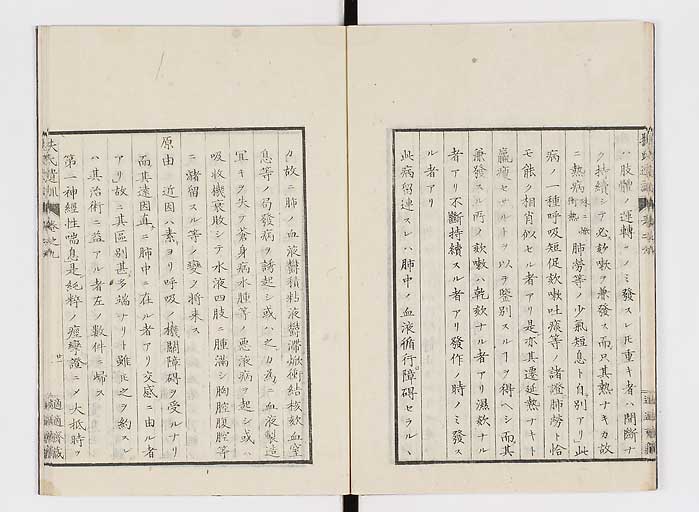 ハ肢體ノ運轉ニノミ發スレ𪜈重キ者ハ間斷ナ
ク持續シテ必欬嗽ヲ兼發ス而只其熱ナキカ故
ニ熱病 肺勞等ノ少氣短息ト自別アリ此
病ノ一種呼吸短促欬嗽吐痰等ノ諸證肺勞ト恰
モ能ク相肖似セル者アリ是亦其遷延熱ナキト
羸瘦セサルトヲ以テ鑒別スルヿヲ得ヘシ而其
兼發スル所ノ欬嗽ハ乾欬ナル者アリ濕欬ナル
者アリ不斷持續スル者アリ發作ノ時ノミ發ス
ル者アリ
此病留連スレハ肺中ノ血液循行障碍セラルヽ
カ故ニ肺ノ血液鬱積粘液鬱滯焮衝結核欬血窒
息等ノ發病ヲ誘起シ或ハ之カ爲ニ血液製造
ノ冝キヲ失テ蒼身病水腫等ノ惡液病ヲ起シ或ハ
吸收機衰敗シテ水液四肢ニ腫滿シ胸腔腹腔等
ニ瀦留スル等ノ變ヲ將来ス
原由 近因ハ素ヨリ呼吸ノ機關障碍ヲ受ルナリ
而其遠因直ニ肺中ニ在ル者アリ交感ニ由ル者
アリ故ニ其區別甚多端ナリト雖𪜈之ヲ約スレ
ハ其治術ニ益アル者左ノ數件ニ歸ス
第一神經性喘息是純粹ノ痙攣證ニメ大抵時ヲ
扶氏遺訓 卷之九
廿一
適適齋藏